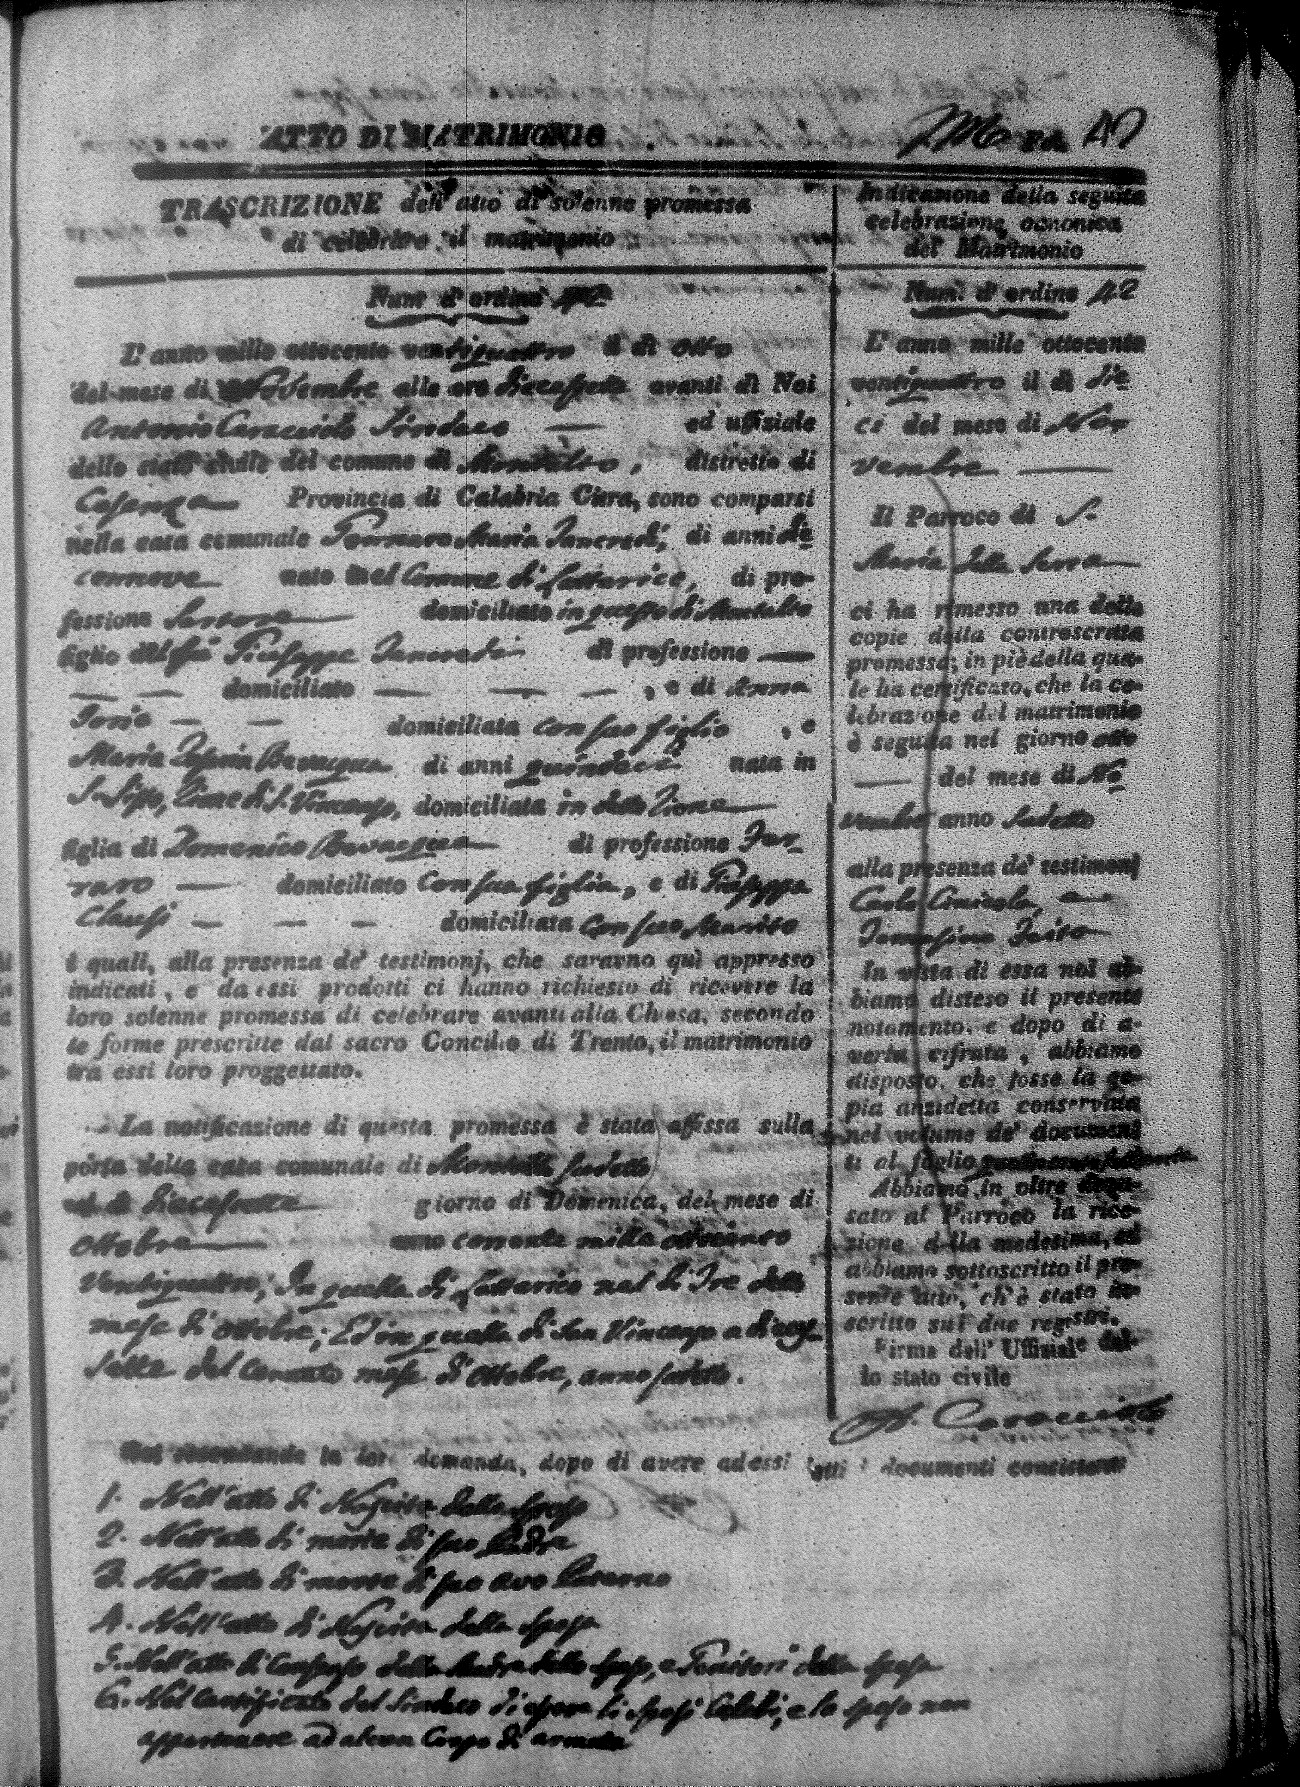 ATTO DI MATRIMONIO
TRASCRIZIONE dell'atto di solenne promessa
di celebrare il matrimonio
Num d'ordine 42
L'anno mille ottocento ventiquattro il dì otto
del mese di Novembre alle ore diecessette avanti di Noi
Antonio Caracciolo Sindaco — ed uffiziale
dello stato civile del comune di Montalto, distretto di
Cosenza Provincia di Calabria Citra, sono comparsi
nella casa comunale Gennaro Maria Tancredi, di anni die
cennove nato nel Comune di Lattarico, di pro-
fessione domiciliato in questo di Montalto
figlio del fu Giuseppe Tancredi di professione —
— — domiciliato — — — , e di Anna
— — domiciliata con suo figlio , e
Maria Bevacqua di anni quindeci nata in
S. Sisto, di S. Vincenzo, domiciliata in detto
figlia di Domenico Bevacqua di professione Fer-
raro — domiciliato con sua figlia, e di Giuseppa
Chiusi — — — domiciliata con suo Marito
i quali, alla presenza de' testimonj, che saranno quì appresso
indicati, e da essi prodotti ci hanno richiesto di ricevere la
loro solenne promessa di celebrare avanti alla Chiesa, secondo
le forme prescritte dal sacro Concilio di Trento, il matrimonio
tra essi loro proggettato.
La notificazione di questa promessa è stata affissa sulla
porta della casa comunale di Montalto sudetto
nel dì diecessette giorno di Domenica, del mese di
ottobre anno corrente mille ottocento
Ventiquattro; In quella di Lattarico nel dì Tre dello
mese di ottobre; Ed in quella di San Vincenzo a diecis-
sette del corrente mese di ottobre, anno sudetto.
Noi secondando la loro domanda, dopo di avere ad essi letti i documenti consistenti
1. Nell'atto di Nascita dello sposo
2. Nell'atto di morte di suo Padre
3. Nell'atto di morte di suo avo Paterno
4. Nell'atto di Nascita della sposa
5. Nell'atto di Consenso della Madre dello sposo, e Genitori della sposa
6. Nel Certificato del Sindaco di essere li sposi Celibi, e lo sposo non
appartenere ad alcun Corpo di armata
Indicazione della seguita
celebrazione canonica
del Matrimonio
Num. d'ordine 42
L'anno mille ottocento
ventiquattro il dì die
ci del mese di Nov
vembre —
Il Parroco di S.
Maria della Serra
ci ha rimesso una delle
copie della controscritta
promessa; in piè della qua-
le ha certificato, che la ce-
lebrazione del matrimonio
è seguita nel giorno otto
— del mese di No
vembre anno sudetto
alla presenza de' testimonj
Carlo
In vista di essa noi ab-
biamo disteso il presente
notamento, e dopo di a-
verla cifrata, abbiamo
disposto, che fosse la co-
pia anzidetta conservata
nel volume de' documen-
ti al foglio
Abbiamo in oltre accu-
sato al Parroco la rice-
zione della medesima, ed
abbiamo sottoscritto il pre-
sente atto, ch'è stato in-
scritto sui due registri.
Firma dell'Uffiziale del-
lo stato civile
A. Caracciolo